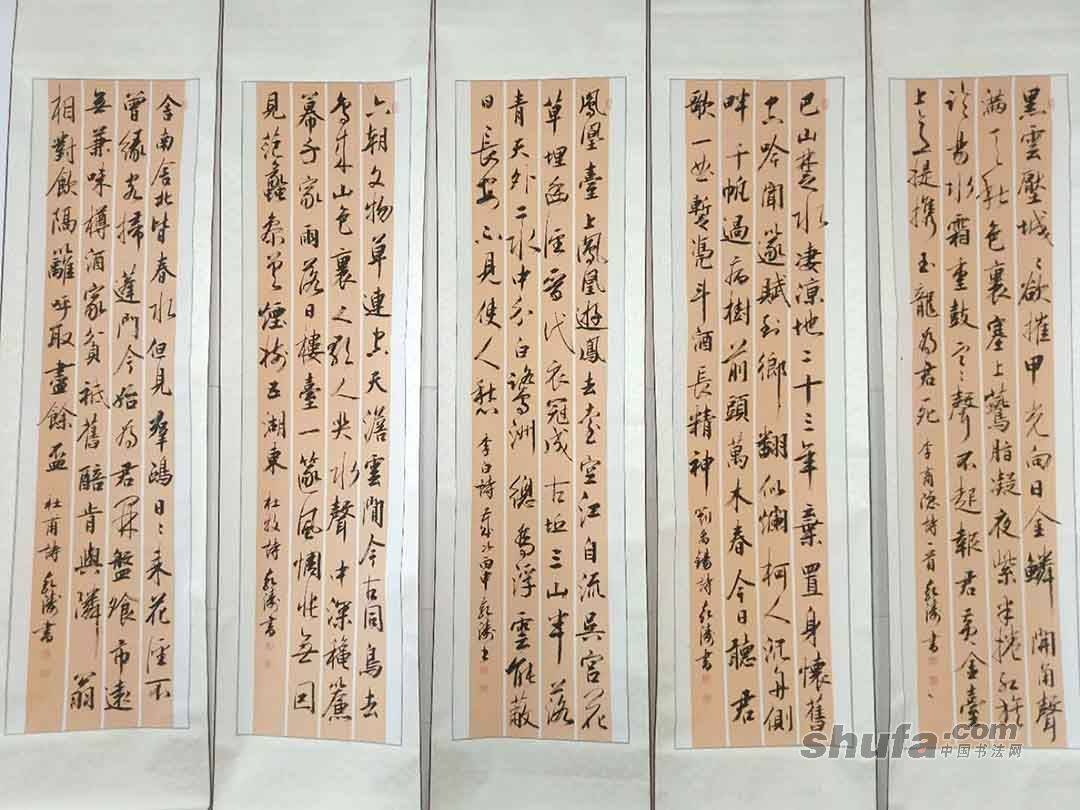 黑雲壓城〻欲摧甲光向日金鱗開角聲
滿天秋色裏塞上鷰脂凝夜紫半捲紅旗
臨易水霜重鼓寒〻聲不起報君黃金臺
上意提攜玉龍為君死 李商隱詩一首 書
巴山楚水凄涼地二十三年棄置身懷舊
空吟聞篴賦到鄉翻似爛柯人沉舟側
畔千帆過病樹前頭萬木春今日聽君
歌一曲暫憑斗酒長精神 劉禹錫詩 書
鳳凰臺上鳳凰遊鳳去臺空江自流吳宮花
草埋幽徑晉代衣冠成古丘三山半落
青天外二水中分白鷺洲總為浮雲能蔽
日長安不見使人愁 李白詩 歲次丙申 書
六朝文物草連空天澹雲閒今古同鳥去
鳥來山色裏人歌人哭水聲中深穐簾
幕千家雨落日樓臺一篴風惆悵無因
見范蠡參差煙樹五湖東 杜牧詩 書
舍南舍北皆春水但見群鷗日〻來花徑不
曾緣客掃蓬門今始為君開盤飧市遠
無兼味樽酒家貧祗舊醅肯與隣翁
相對飲隔籬呼取盡餘盃 杜甫詩 書
shufa.com
中国书法网